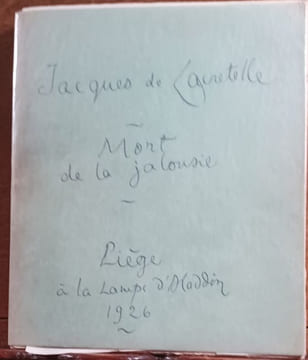 Jacques de Lacretelle
~
Mort
de la jalousie
~
Liège
à la Lampe d'Aladdin
1926
~